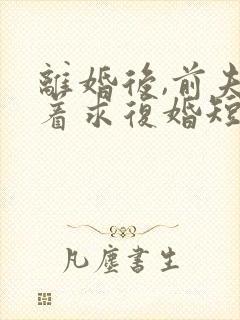 離婚後,前夫
着求復婚短
凡塵書生